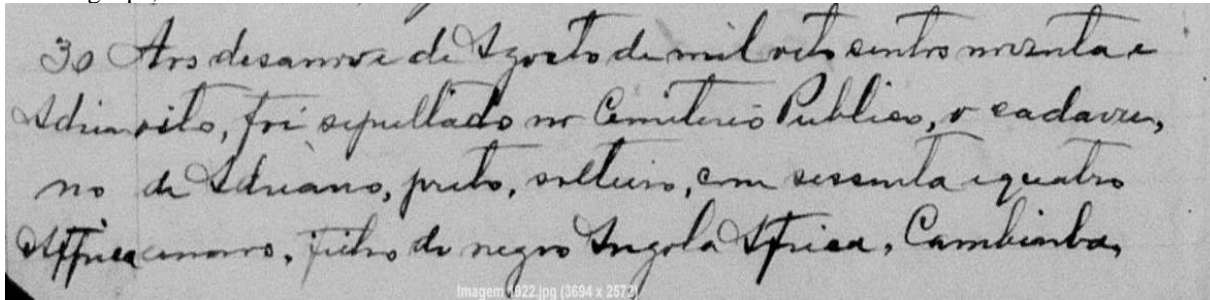 30 Aos desanove de Agosto de mil oito sentos noventa e
Adria oito, foi sepultado no Cemiterio Publico, o cadaver,
no de Adriano, preto, solteiro, com sessenta e quatro
Africa annos, filho de negro Angola Africa, Cambinba,
Imagem 1922.jpg (3694 x 2572)